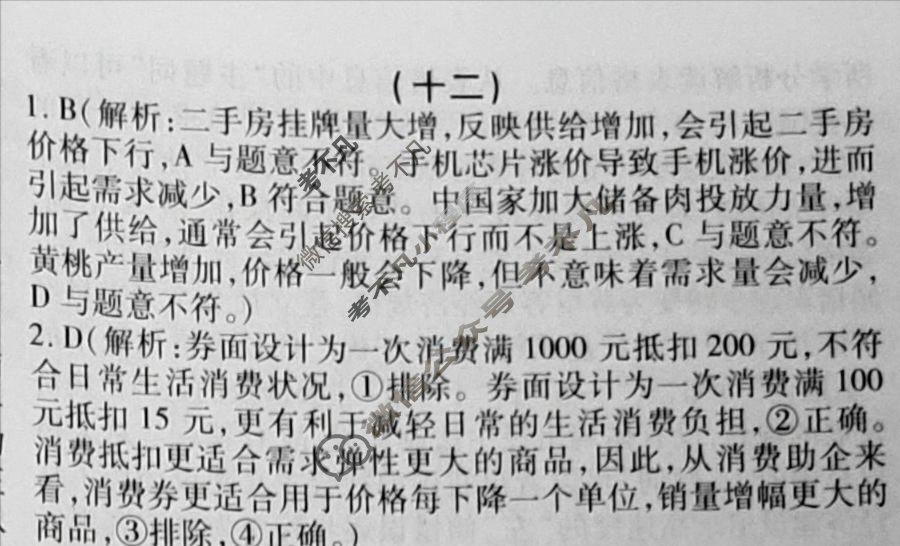 (十二)
1. B(解析:二手房挂牌量大增,反映供给增加,会引起二手房
价格下行,A 与题意不符。手机芯片涨价导致手机涨价,进而
引起需求减少,B 符合题意。中国家加大储备肉投放力量,增
加了供给,通常会引起价格下行而不是上涨,C 与题意不符。
黄桃产量增加,价格一般会下降,但不意味着需求量会减少,
D 与题意不符。)
2. D(解析:券面设计为一次消费满 1000 元抵扣 200 元,不符
合日常生活消费状况,①排除。券面设计为一次消费满 100
元抵扣 15 元,更有利于减轻日常的生活消费负担,②正确。
消费抵扣更适合需求弹性更大的商品,因此,从消费助企来
看,消费券更适合用于价格每下降一个单位,销量增幅更大的
商品,③排除,④正确。)
考不凡
微信搜索考不凡
考不凡小程序
微信公众号考不凡